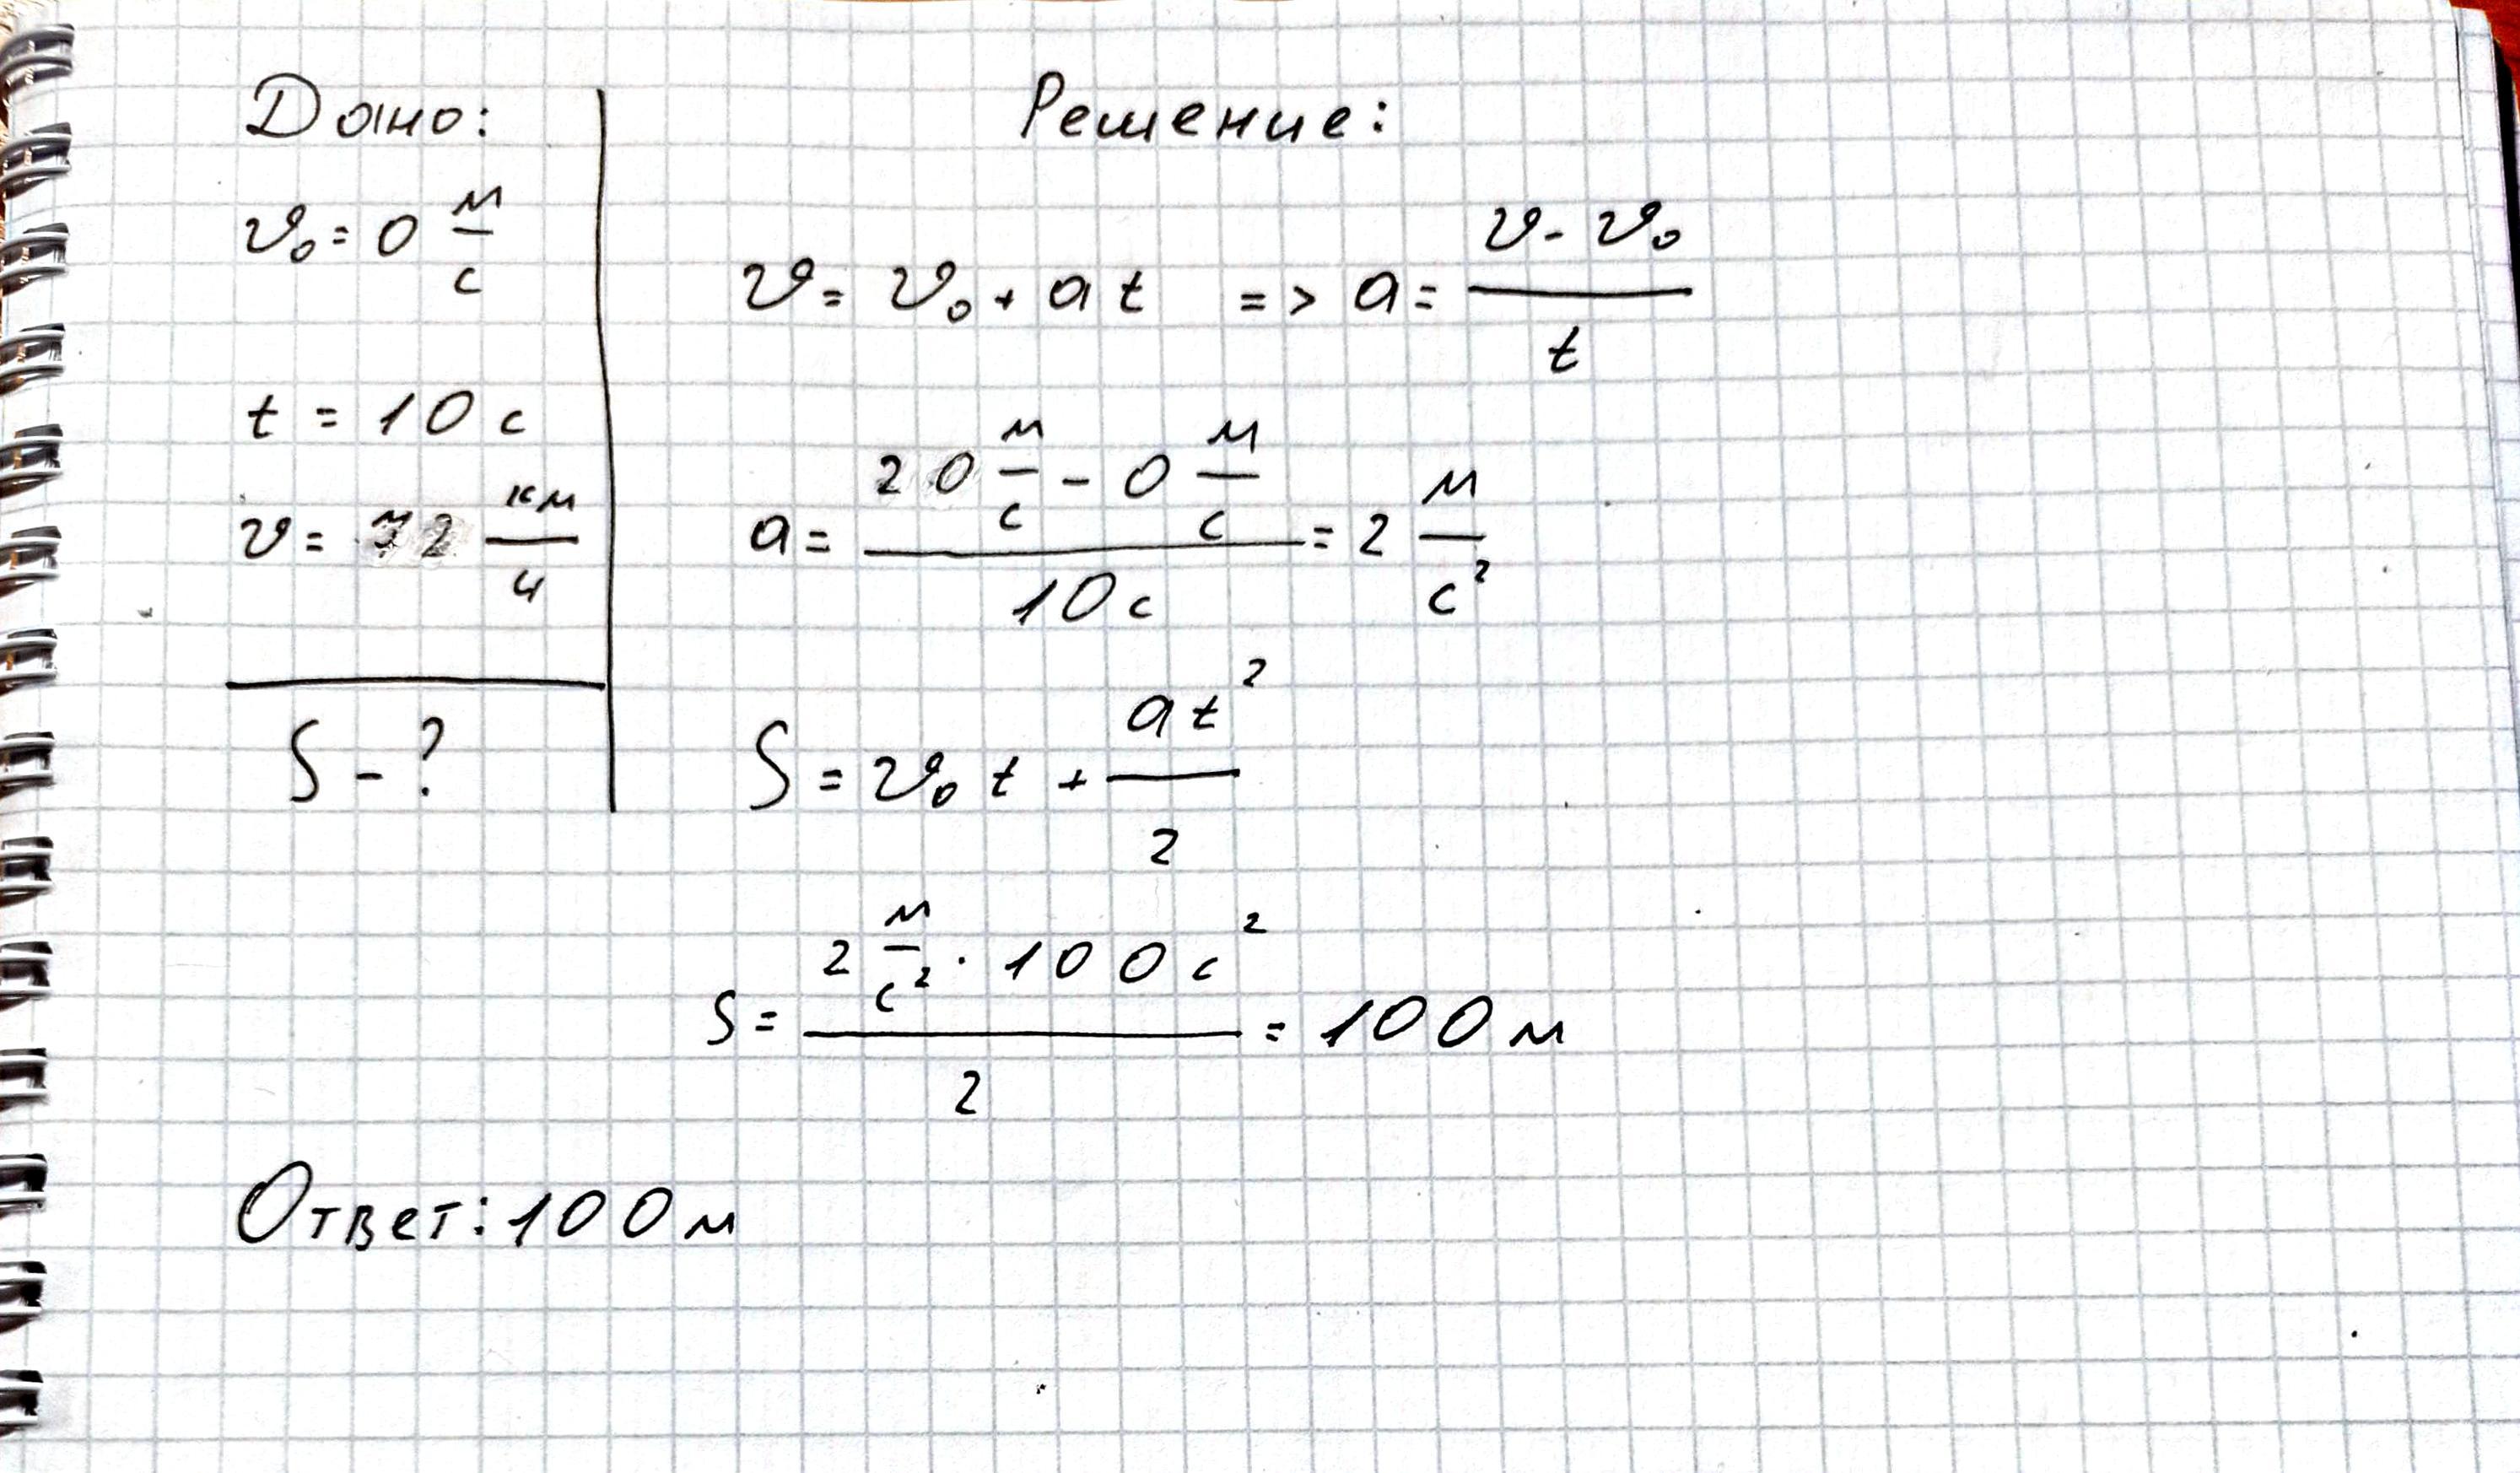 Дано:
v₀ = 0 м/с
t = 10 с
v = 72 км/ч
S - ?
Решение:
v = v₀ + at => a = (v - v₀)/t
a = (20 м/с - 0 м/с)/10 с = 2 м/с²
S = v₀t + at²/2
S = (2 м/с² · 100 с²)/2 = 100 м
Ответ: 100 м